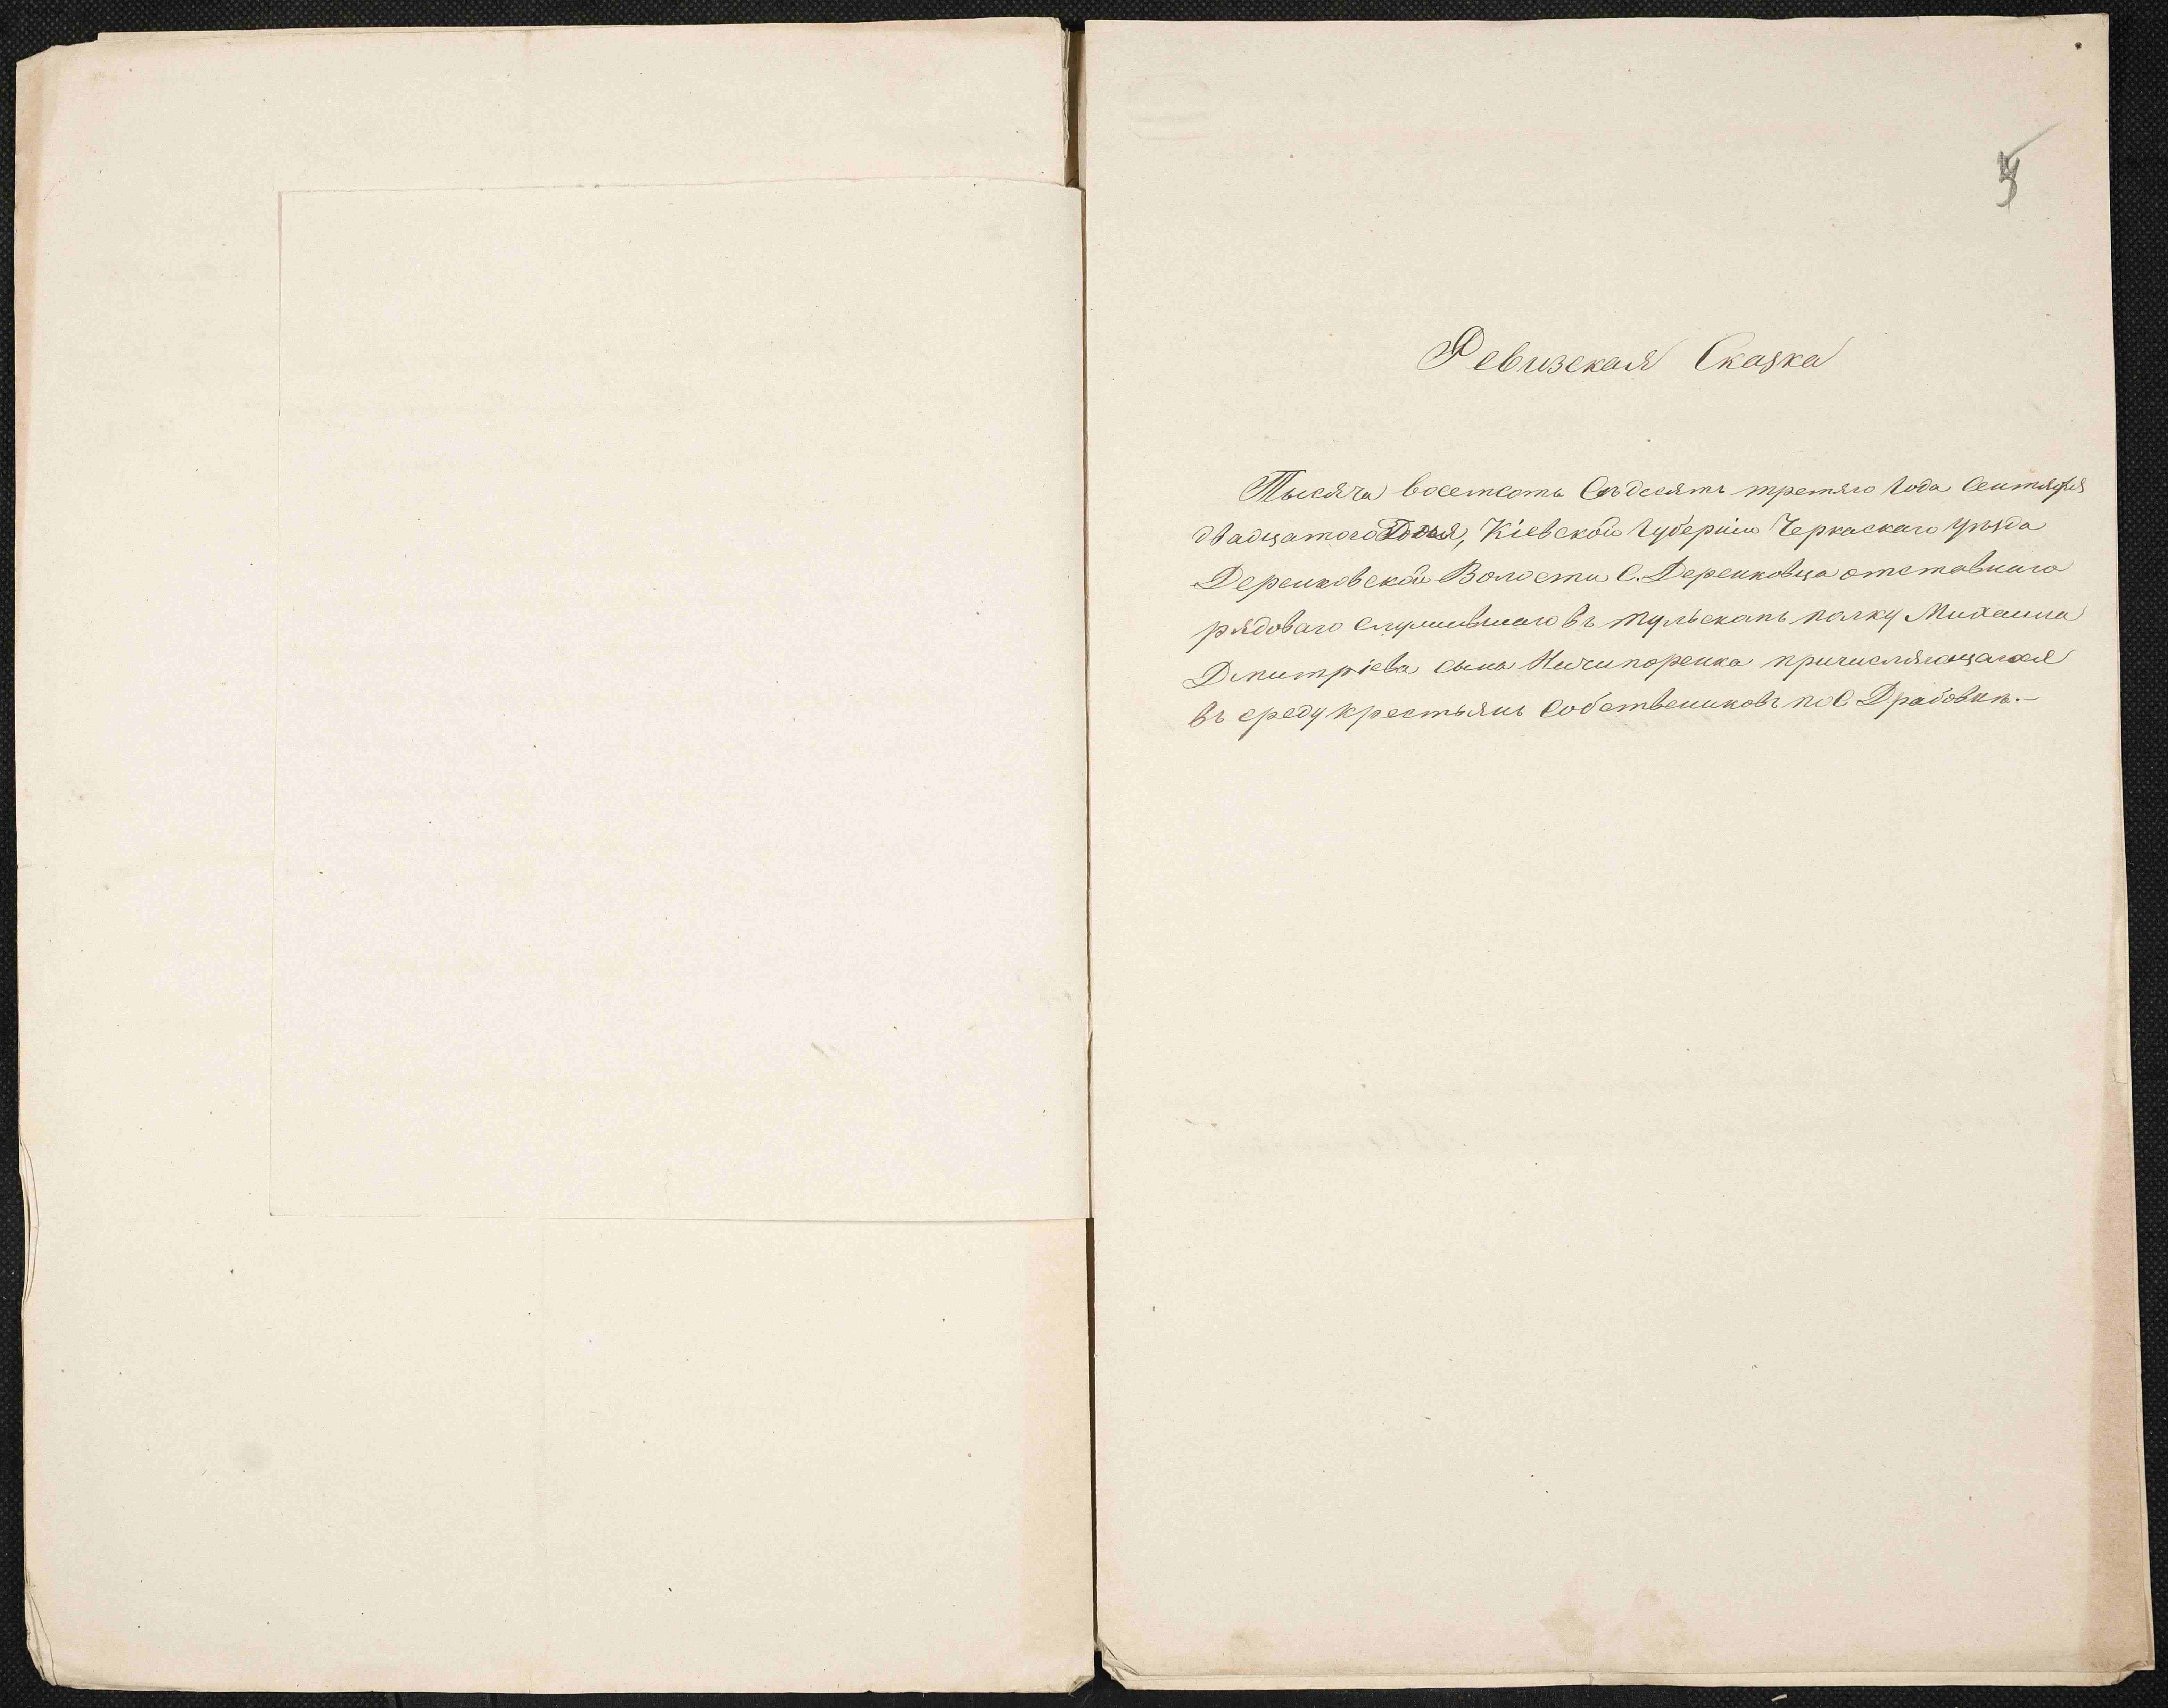 5
Ревизская Сказка
Тысяча восемсотъ Семдесятъ третяго Года Сентября
двадцатого дня, Кіевской Губерніи Черкаскаго уѣзда
Деренковской Волости С. Деренковца отставнаго
рядоваго служившаго въ Тульскомъ полку Михаила
Дмитріева сына Ничипоренка причисляющагося
въ среду крестьянъ Собствениковъ по С Драбовкѣ.-